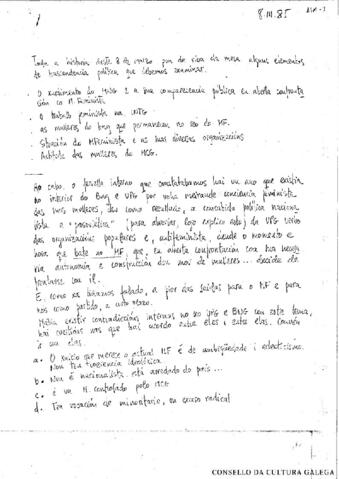 8.III.85
Toda a historia deste 8 de marzo pon de riba da mesa algúns elementos
de trascendencia política que debemos examinar.
. O xurdimento do MNG e a sua comparecencia pública en aberta confrontación
co M. Feminista
. O traballo feminista na INTG
as mulleres do bng que permanecen no seo do MF.
Situación do MFeminista e as suas diversas organizacións
Actitude das mulleres do MCG.
Ao cabo, o parello interno que constatabamos hai un ano que existía
no interior do Bng e UPG por unha medrante conciencia feminista
das suas mulleres, deu como resultado, a concebida política nacionalista
e "posibilista" (para abreviar, logo explico esto) da UPG verbo
das organizacións populares e, antifeminista, dende o momento e
hora que bate no MF; que, en aberta confrontación coa sua necesaria
autonomía e construcción dun mov de mulleres... decide
enfrontarse con il.
E, como xa tiñamos falado, a pior das saídas para o MF e para
nos como partido, a curto prazo.
Malia existir contradiccións internas no UPG e BNG con este tema,
hai cuestións nas que hai acordo entre eles e entre elas. Convén
ir con elas.
a. O xuício que merece o actual MF é de ambigüedade i eclecticismo.
Non ten transcendencia ideolóxica
b. Non é nacionalista. está arredado do país...
c. é un M. controlado polo MCG
d. Ten vocación de minoritario, un exceso radical
CONSELLO DA CULTURA GALEGA